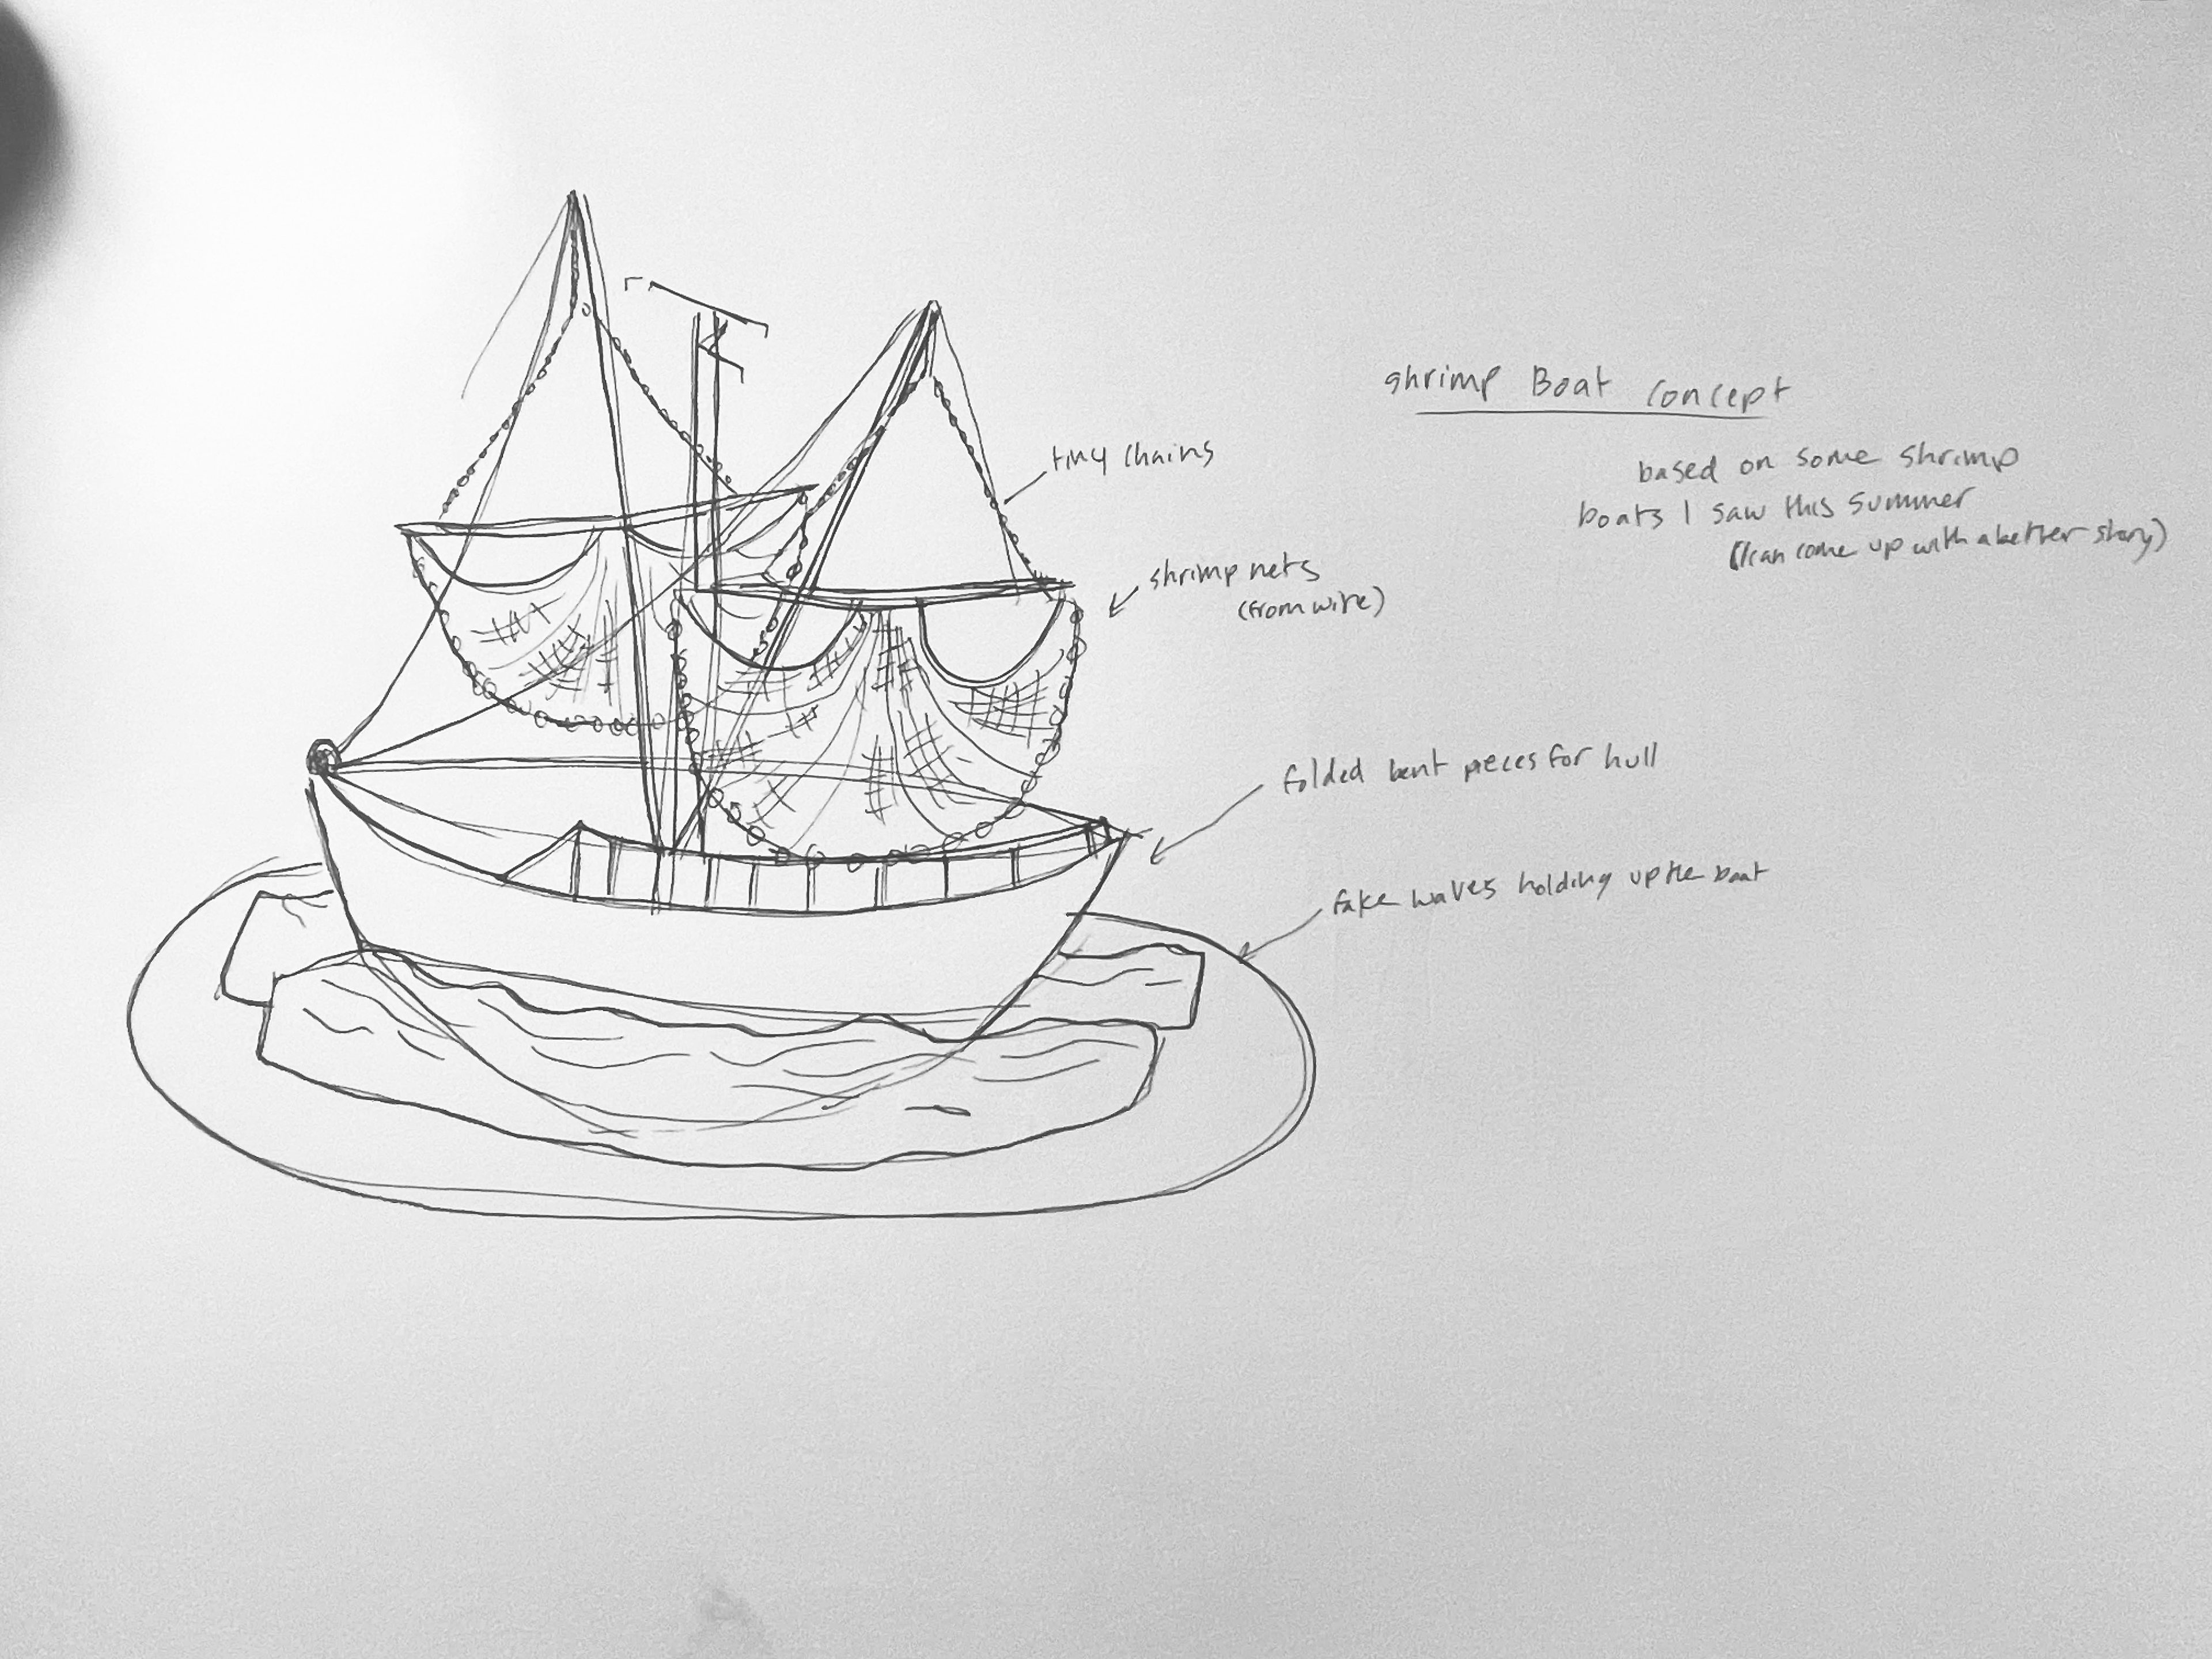 shrimp Boat concept
based on some shrimp
boats I saw this summer
(I can come up with a better story)
tiny chains
shrimp nets
(from wire)
folded bent pieces for hull
fake waves holding up the boat